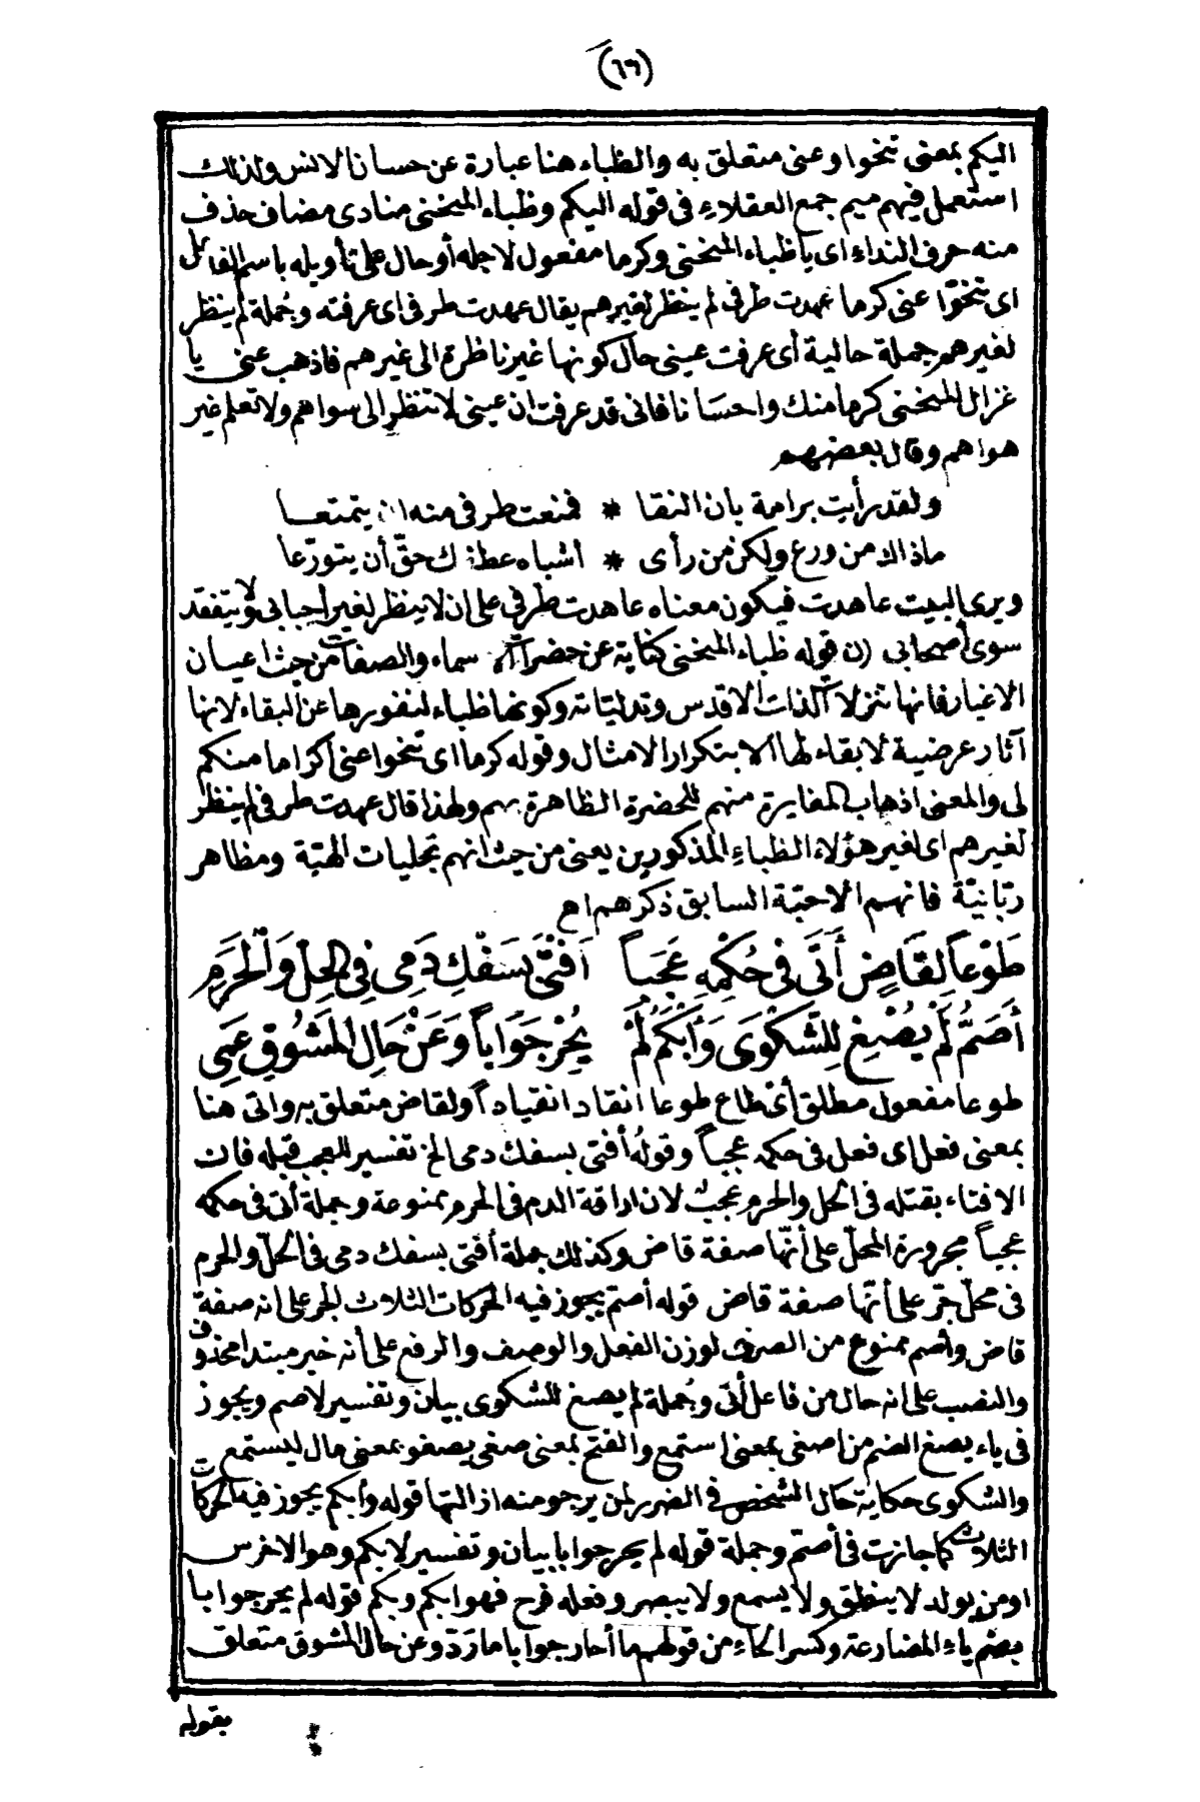 (١٦)
اليكم بمعنى تنحوا وعنى متعلق به والظباء هنا عبارة عن حسان الانس ولذلك
استعمل فيهم ميم جمع العقلاء فى قوله اليكم وظباء المنحنى منادى مضاف حذف
منه حرف النداء اى يا ظباء المنحنى وكرما مفعول لاجله أو حال على تأويله باسم الفاعل
اى تنحوّا عنى كرما عهدت طرفى لم ينظر لغيرهم يقال عهدت طرفى اى عرفته وجُملة لم ينظر
لغيرهم جملة حالية أى عرفت عينى حال كونها غير ناظرة الى غيرهم فاذهب عنى يا
غزال المنحنى كرما منك واحسانا فانى قد عرفت ان عينى لا تنظر الى سواهم ولا تعلم غير
هواهم وقال بعضهم
ولقد رأيت برامة بان النقا * فمنعت طرفى منه ان يتمتعا
ما ذاك من ورع ولكن من رأى * أشباه عطفك حقّ أن يتورّعا
ويرى البيت عاهدت فيكون معناه عاهدت طرفى على ان لا ينظر لغير أحبابى ولا يتفقد
سوى أصحابى (ن) قوله ظباء المنحنى كناية عن حضرات الاسماء والصفات من حيث اعيان
الاغيار فانها تنزلات الذات الاقدس وتدليّاته وكونها ظباء لنفورها عن البقاء لانها
آثار عرضية لا بقاء لها الا بتكرار الامثال وقوله كرما اى تنحوا عنى اكراما منكم
لى والمعنى اذهاب المغايرة منهم للحضرة الظاهرة بهم ولهذا قال عهدت طرفى لم ينظر
لغيرهم اى لغير هؤلاء الظباء المذكورين يعنى من حيث انهم تجليات الهيّة ومظاهر
ربّانيّة فانهم الاحبّة السابق ذكرهم اه
طَوْعاً لِقَاضٍ أَتَى فِى حُكْمِهِ عَجَباً أَفْتَى بِسَفْكِ دَمِى فِى الحِلِّ وَالْحَرَمِ
أَصَمُّ لَمْ يُصْغِ لِلشَّكْوَى وَأَبْكَمُ لَمْ يُحِرْ جَوَاباً وَعَنْ حَالِ المَشُوقِ عَمِى
طوعا مفعول مطلق أى طاع طوعا انقاد انقياداً ولقاض متعلق به واتى هنا
بمعنى فعل اى فعل فى حكمه عجباً وقوله أفتى بسفك دمى الخ تفسير للعجب قبله فان
الافتاء بقتله فى الحل والحرم عجب لان اراقة الدم فى الحرم ممنوعة وجملة أتى فى حكمه
عجباً مجرورة المحلّ على أنّها صفة قاض وكذلك جملة أفتى بسفك دمى فى الحلّ والحرم
فى محلّ جرّ على أنّها صفة قاض قوله أصم يجوز فيه الحركات الثلاث الجر على انه صفة
قاض وأصم ممنوع من الصرف لوزن الفعل والوصف والرفع على أنه خبر مبتدا محذوف
والنصب على انه حال من فاعل أتى وجُملة لم يصغ للشكوى بيان وتفسير لاصم ويجوز
فى ياء يصغ الضم من اصغى بمعنى استمع والفتح بمعنى صغى يصغو بمعنى مال ليستمع
والشكوى حكاية حال الشخص فى الضرر لمن يرجو منه ازالتها قوله وأبكم يجوز فيه الحركات
الثلاث كما جازت فى أصمّ وجملة قوله لم يحر جوابا بيان وتفسير لابكم وهو الاخرس
او من يولد لا ينطق ولا يسمع ولا يبصر وفعله فرح فهو ابكم وبكم قوله لم يحر جوابا
بضم ياء المضارعة وكسر الحاء من قولهم ما أحار جوابا ما ردّ وعن حال المشوق متعلق
بقوله